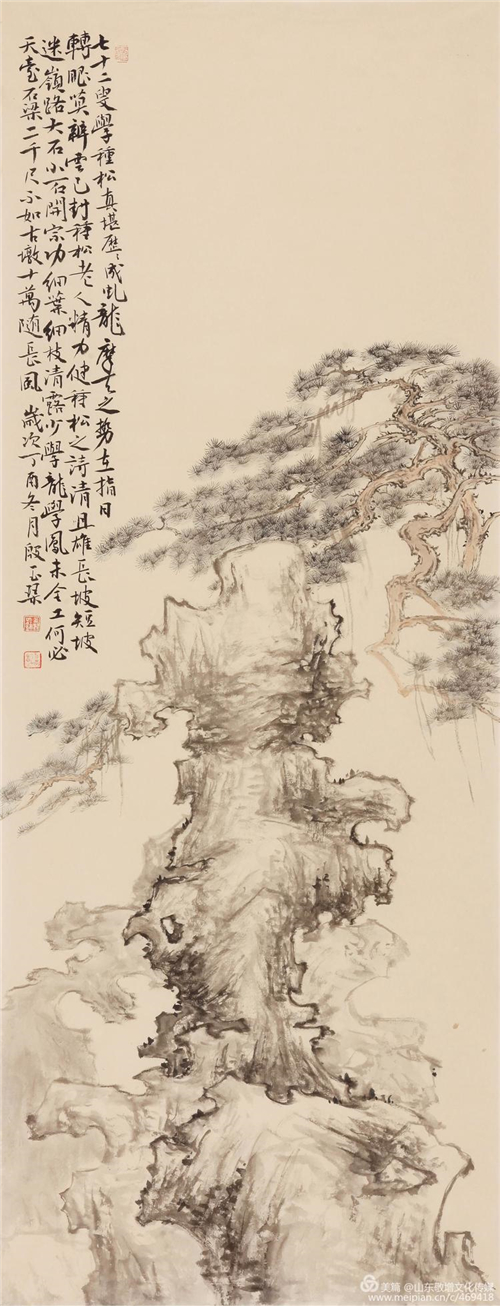 七十二叟學種松真堪歷〻成虬龍摩天之勢在指日
轉眼莫辨雲已封種松老人精力健種松之詩清且雄長坡短坡
迷嶺路大石小石開宗功細葉細枝清露少學龍學鳳未全工何必
天臺石梁二千尺不如古墩十萬隨長風 歲次丁酉冬月殷玉
美篇 @山东敬塘文化传媒
www.meipian.cn/c/469418